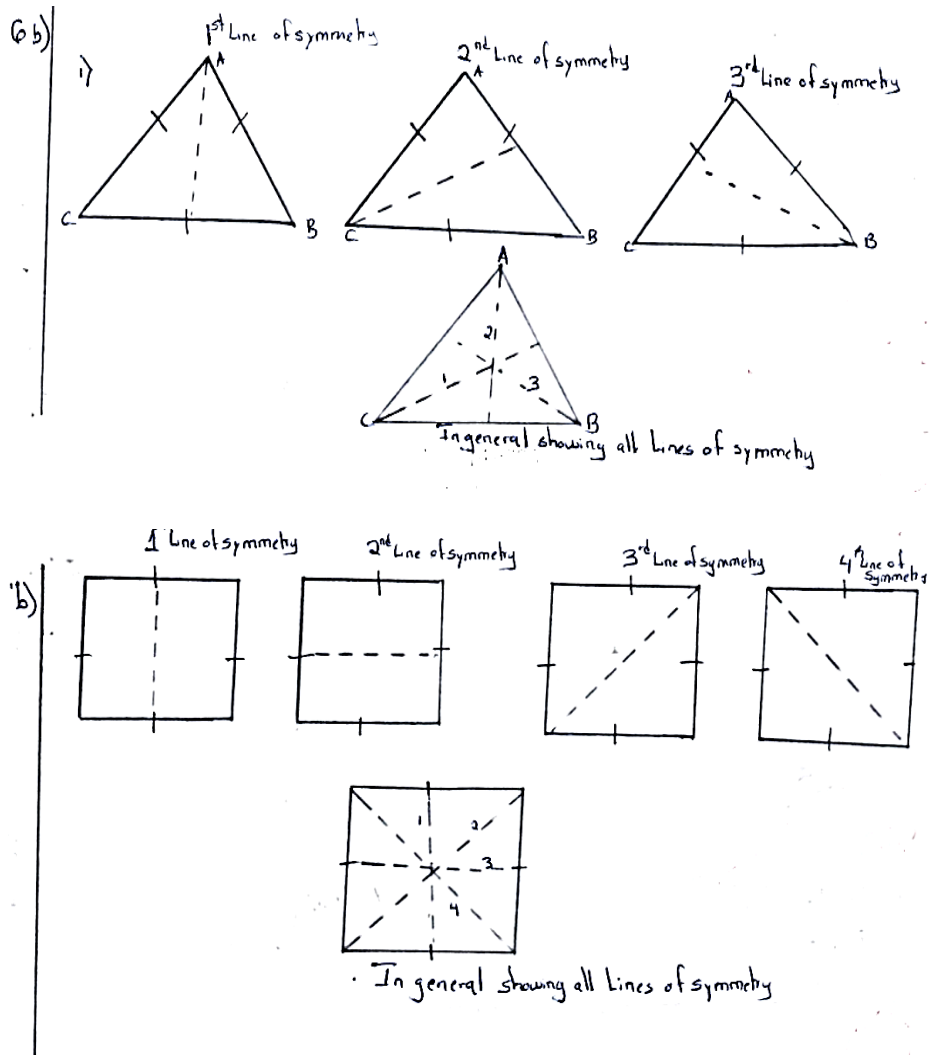 6b)
i)
1st Line of symmetry
A
C
B
2nd Line of symmetry
A
C
B
3rd Line of symmetry
A
C
B
A
21
1
3
C
B
In general showing all Lines of symmetry
b)
1 Line of symmetry
2nd Line of symmetry
3rd Line of symmetry
4th Line of
symmetry
1
2
3
4
In general showing all Lines of symmetry